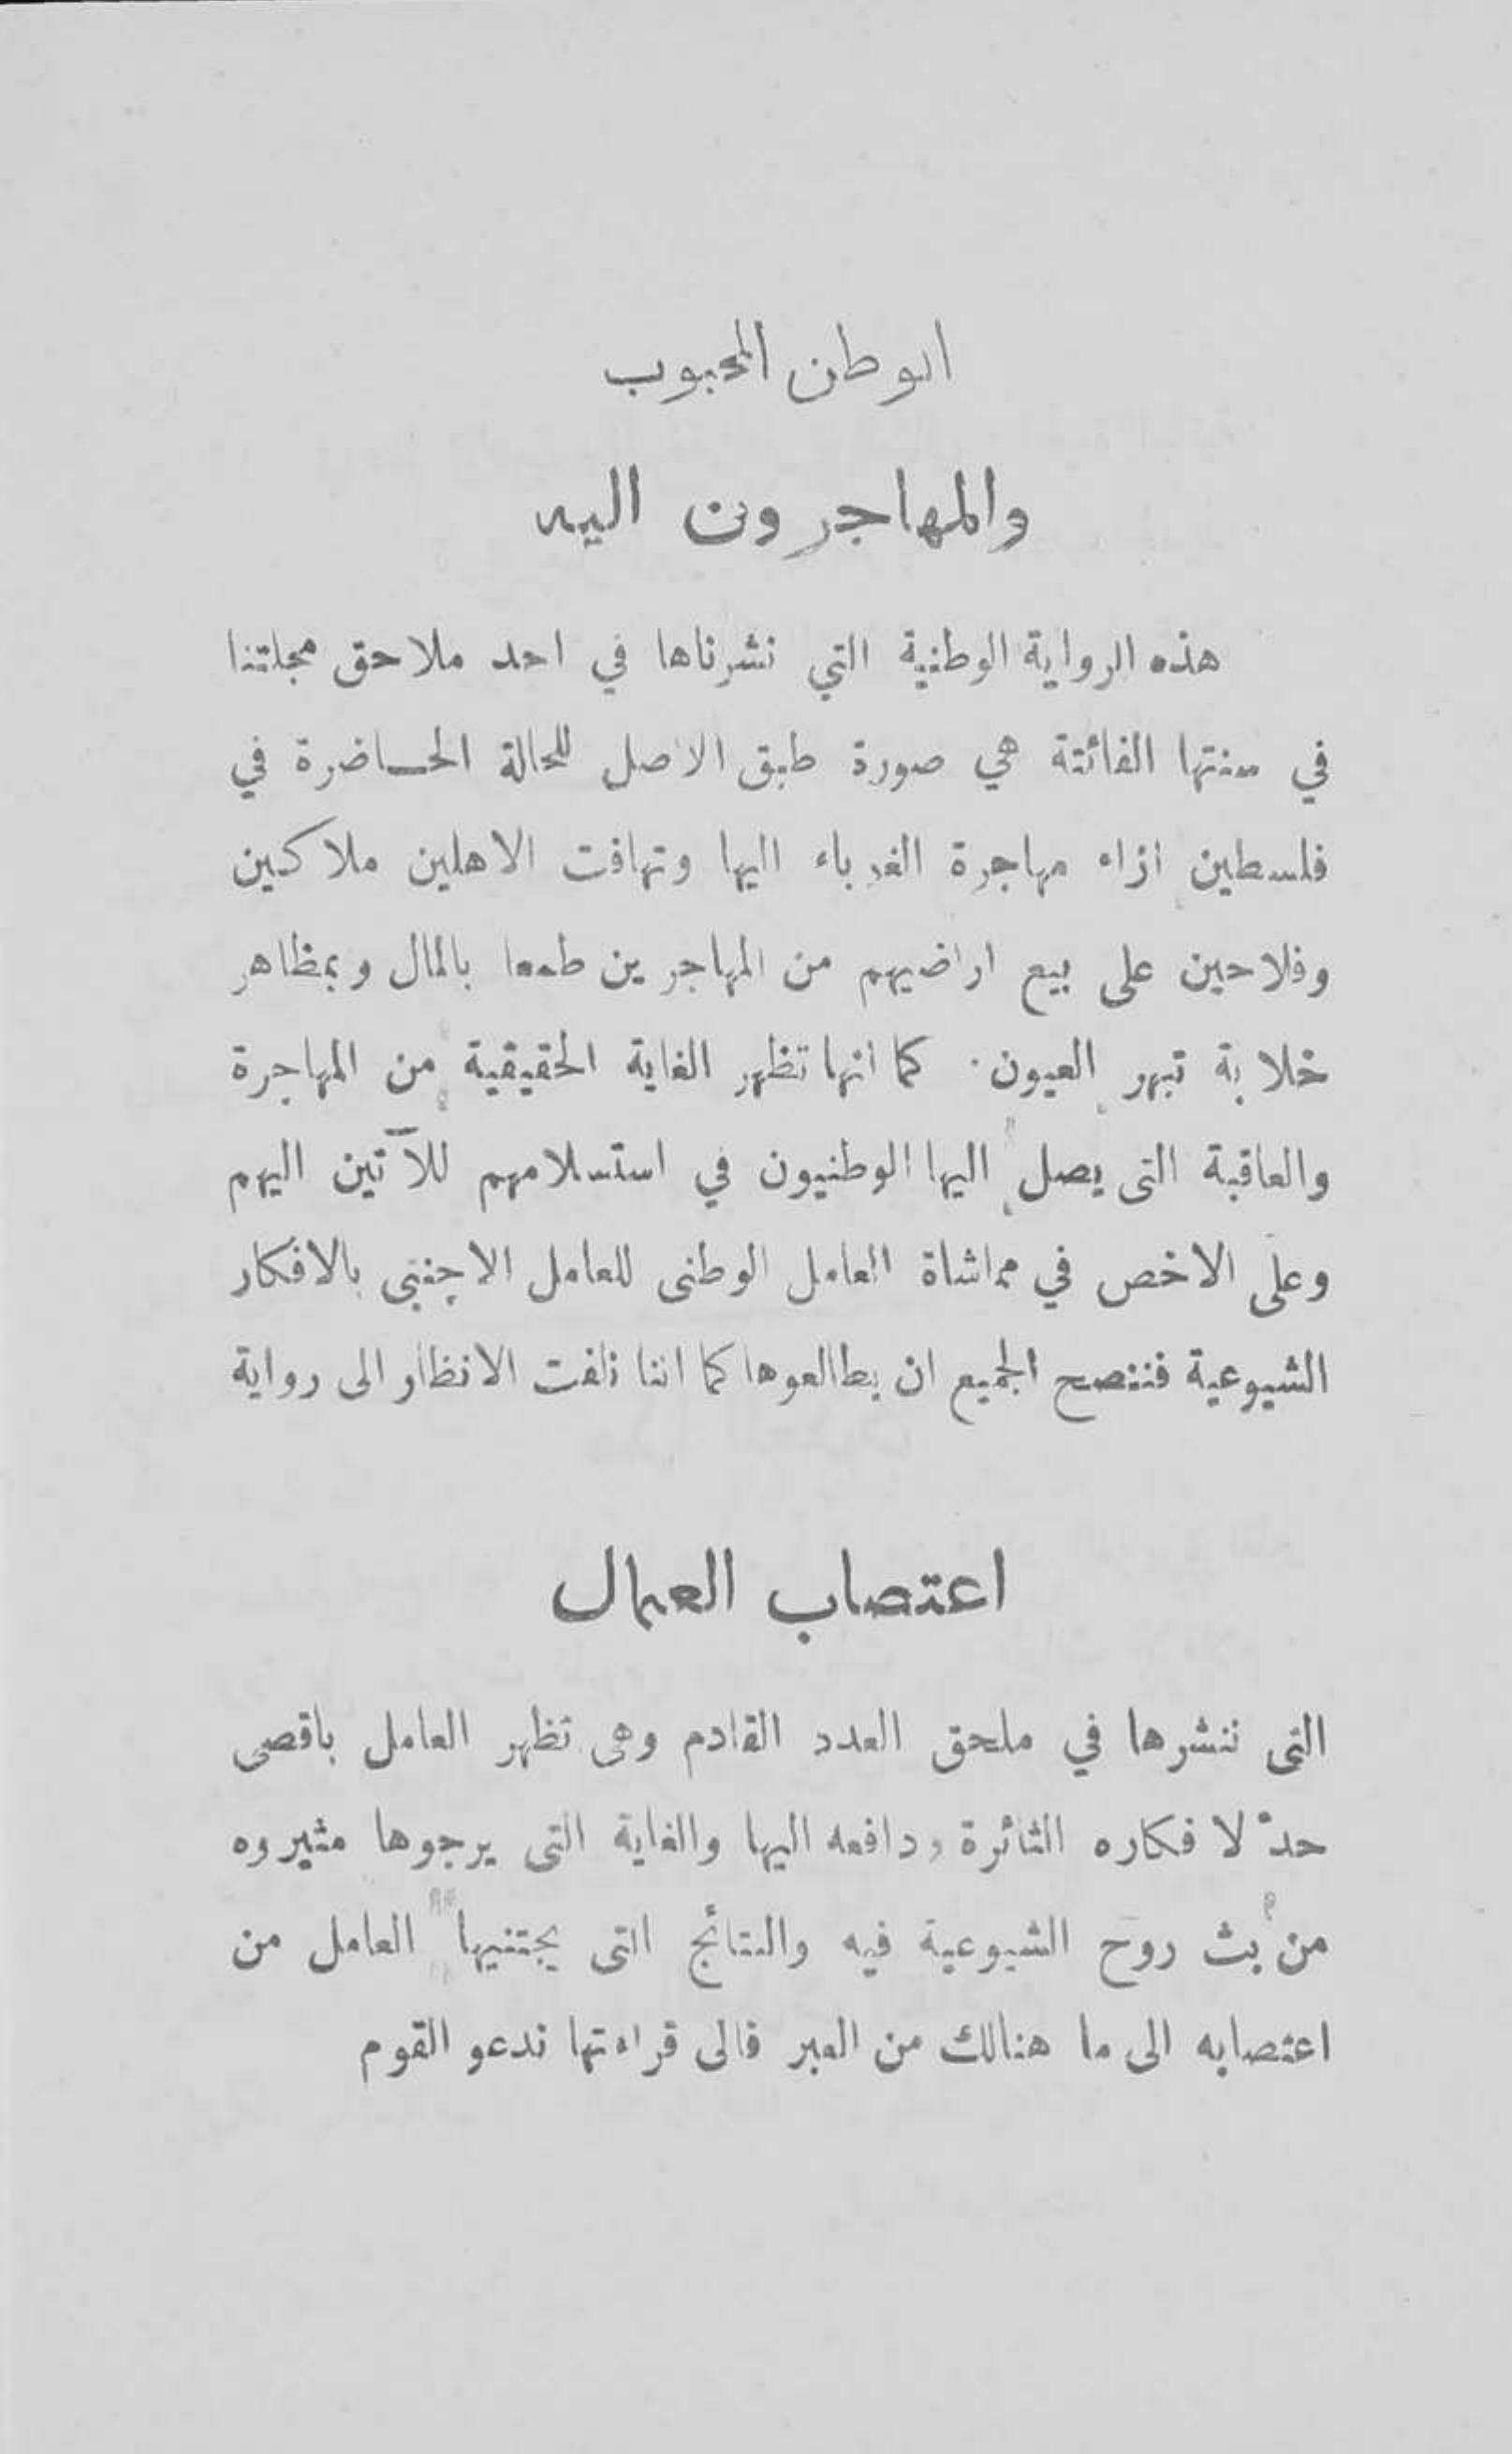 الوطن المحبوب
والمهاجرون اليه
هذه الرواية الوطنية التي نشرناها في احد ملاحق مجلتنا
في سنتها الفائتة هي صورة طبق الاصل للحالة الحاضرة في
فلسطين ازاء مهاجرة الغرباء اليها وتهافت الاهلين ملاكين
وفلاحين على بيع اراضيهم من المهاجرين طمعا بالمال وبمظاهر
خلابة تبهر العيون. كما انها تظهر الغاية الحقيقية من المهاجرة
والعاقبة التى يصل اليها الوطنيون في استسلامهم للآتين اليهم
وعلى الاخص في مماشاة العامل الوطنى للعامل الاجنبى بالافكار
الشيوعية فننصح الجميع ان يطالعوها كما اننا نلفت الانظار الى رواية
اعتصاب العمال
التى ننشرها في ملحق العدد القادم وهى تظهر العامل باقصى
حدّ لافكاره الثائرة ودافعه اليها والغاية التى يرجوها مثيروه
من بث روح الشيوعية فيه والنتائج التى يجتنيها العامل من
اعتصابه الى ما هنالك من العبر فالى قراءتها ندعو القوم